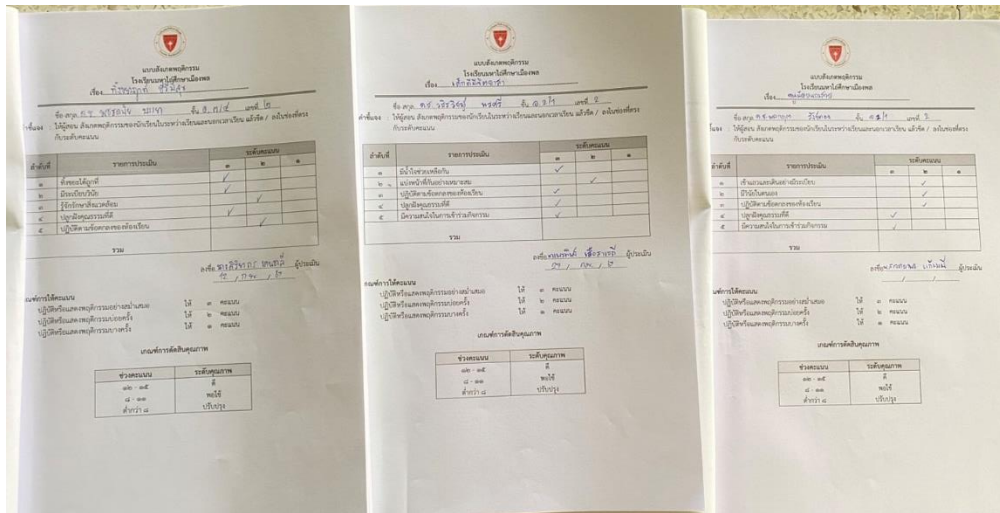 แบบสังเกตพฤติกรรม
โรงเรียนมหาไถ่ศึกษาเมืองพล
เรื่อง
ชื่อ-สกุล ชั้น เลขที่
คำชี้แจง : ให้ผู้สอน สังเกตพฤติกรรมของนักเรียนในระหว่างเรียนและนอกเวลาเรียน แล้วขีด / ลงในช่องที่ตรง
กับระดับคะแนน
ลำดับที่ รายการประเมิน ระดับคะแนน
๓ ๒ ๑
๑ ทิ้งขยะได้ถูกที่ /
๒ มีระเบียบวินัย /
๓ รู้จักรักษาสิ่งแวดล้อม /
๔ ปลูกฝังคุณธรรมที่ดี /
๕ ปฏิบัติตามข้อตกลงของห้องเรียน /
รวม
ลงชื่อ ผู้ประเมิน
เกณฑ์การให้คะแนน
ปฏิบัติหรือแสดงพฤติกรรมอย่างสม่ำเสมอ ให้ ๓ คะแนน
ปฏิบัติหรือแสดงพฤติกรรมบ่อยครั้ง ให้ ๒ คะแนน
ปฏิบัติหรือแสดงพฤติกรรมบางครั้ง ให้ ๑ คะแนน
เกณฑ์การตัดสินคุณภาพ
ช่วงคะแนน ระดับคุณภาพ
๑๒ - ๑๕ ดี
๘ - ๑๑ พอใช้
ต่ำกว่า ๘ ปรับปรุง
แบบสังเกตพฤติกรรม
โรงเรียนมหาไถ่ศึกษาเมืองพล
เรื่อง เด็กดีมีจิตอาสา
ชื่อ-สกุล ชั้น เลขที่ 2
คำชี้แจง : ให้ผู้สอน สังเกตพฤติกรรมของนักเรียนในระหว่างเรียนและนอกเวลาเรียน แล้วขีด / ลงในช่องที่ตรง
กับระดับคะแนน
ลำดับที่ รายการประเมิน ระดับคะแนน
๓ ๒ ๑
๑ มีน้ำใจช่วยเหลือกัน /
๒ แบ่งหน้าที่กันอย่างเหมาะสม /
๓ ปฏิบัติตามข้อตกลงของห้องเรียน /
๔ ปลูกฝังคุณธรรมที่ดี /
๕ มีความสนใจในการเข้าร่วมกิจกรรม /
รวม
ลงชื่อ ผู้ประเมิน
เกณฑ์การให้คะแนน
ปฏิบัติหรือแสดงพฤติกรรมอย่างสม่ำเสมอ ให้ ๓ คะแนน
ปฏิบัติหรือแสดงพฤติกรรมบ่อยครั้ง ให้ ๒ คะแนน
ปฏิบัติหรือแสดงพฤติกรรมบางครั้ง ให้ ๑ คะแนน
เกณฑ์การตัดสินคุณภาพ
ช่วงคะแนน ระดับคุณภาพ
๑๒ - ๑๕ ดี
๘ - ๑๑ พอใช้
ต่ำกว่า ๘ ปรับปรุง
แบบสังเกตพฤติกรรม
โรงเรียนมหาไถ่ศึกษาเมืองพล
เรื่อง
ชื่อ-สกุล ชั้น เลขที่ 2
ให้ผู้สอน สังเกตพฤติกรรมของนักเรียนในระหว่างเรียนและนอกเวลาเรียน แล้วขีด / ลงในช่องที่ตรง
กับระดับคะแนน
ลำดับที่ รายการประเมิน ระดับคะแนน
๓ ๒ ๑
๑ เข้าแถวและเดินอย่างมีระเบียบ /
๒ มีวินัยในตนเอง /
๓ ปฏิบัติตามข้อตกลงของห้องเรียน /
๔ ปลูกฝังคุณธรรมที่ดี /
๕ มีความสนใจในการเข้าร่วมกิจกรรม /
รวม
ลงชื่อ ผู้ประเมิน
เกณฑ์การให้คะแนน
ปฏิบัติหรือแสดงพฤติกรรมอย่างสม่ำเสมอ ให้ ๓ คะแนน
ปฏิบัติหรือแสดงพฤติกรรมบ่อยครั้ง ให้ ๒ คะแนน
ปฏิบัติหรือแสดงพฤติกรรมบางครั้ง ให้ ๑ คะแนน
เกณฑ์การตัดสินคุณภาพ
ช่วงคะแนน ระดับคุณภาพ
๑๒ - ๑๕ ดี
๘ - ๑๑ พอใช้
ต่ำกว่า ๘ ปรับปรุง